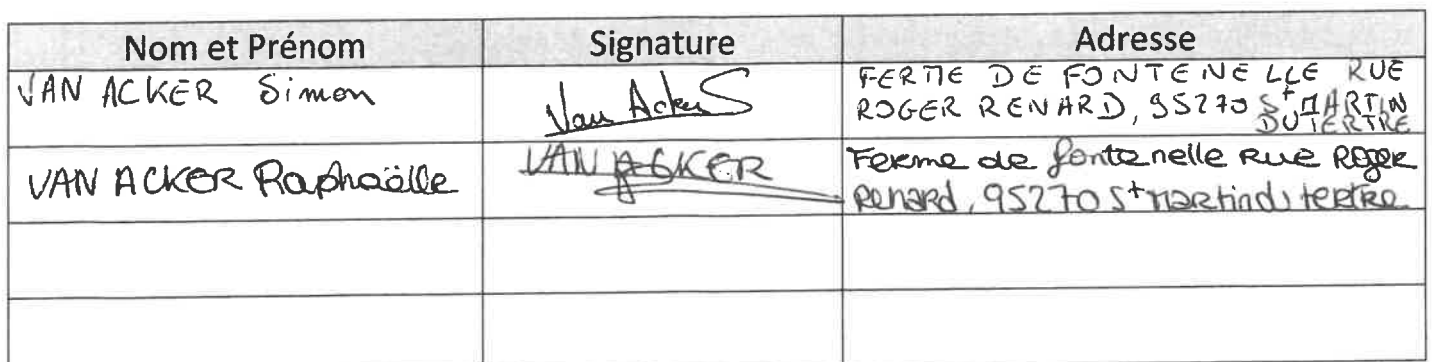 Nom et Prénom Signature Adresse
VAN ACKER Simon
Van Acker S
FERME DE FONTENELLE RUE
ROGER RENARD, 95270 St MARTIN
DU TERTRE
VAN ACKER Raphaëlle
VAN ACKER
Ferme de fontenelle Rue Roger
Renard, 95270 St Martin du tertre